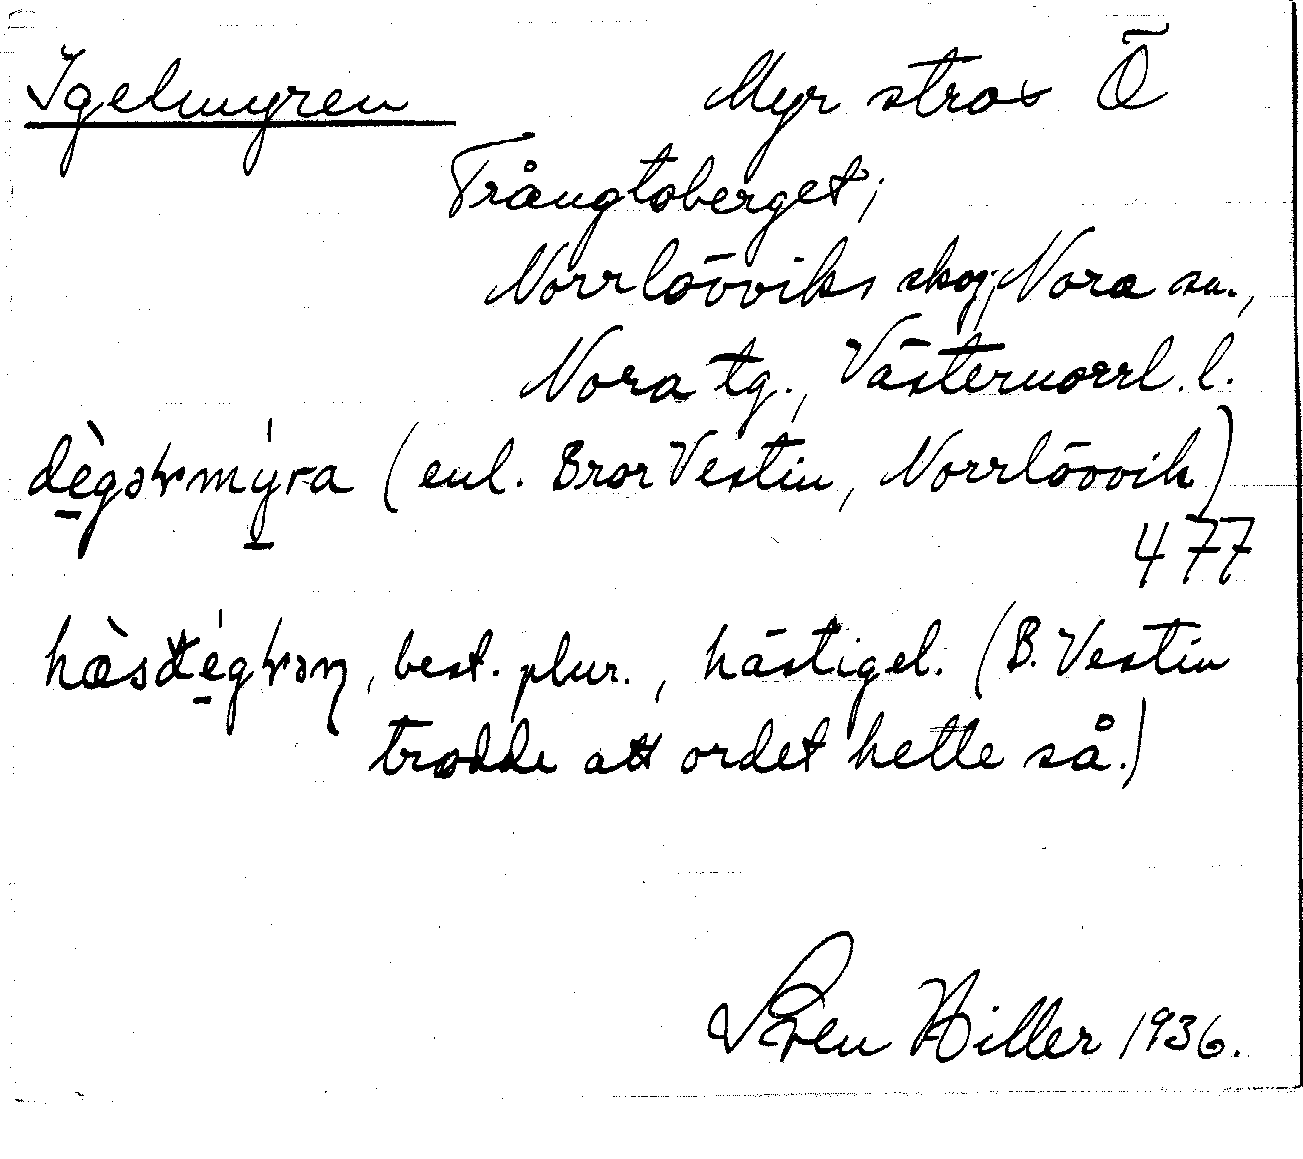 Igelmyren Myr strax Ö
Trångtoberget;
Norrlövviks skog, Nora sn.,
Nora tg., Västernorrl. l.
dègəɽmýra (enl. Bror Vestin, Norrlövvik)
477
hæ̀sdégɽəɳ, best. plur., hästigel. (B. Vestin
trodde att ordet hette så.)
Sven Hiller 1936.